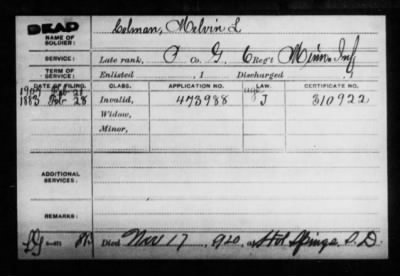 DEAD
NAME OF SOLDIER: Colman, Melvin L
SERVICE: Late rank, P Co. G, 6 Reg't Minn. Inf
TERM OF SERVICE: Enlisted , 1 Discharged , 1
DATE OF FILING. CLASS. APPLICATION NO. LAW. CERTIFICATE NO.
1907 Feb 21 age
1883 Feb 28 Invalid, 473988 J 310922
Widow,
Minor,
ADDITIONAL SERVICES:
REMARKS:
Died Nov 17, 1920, at Hot Springs S.D.